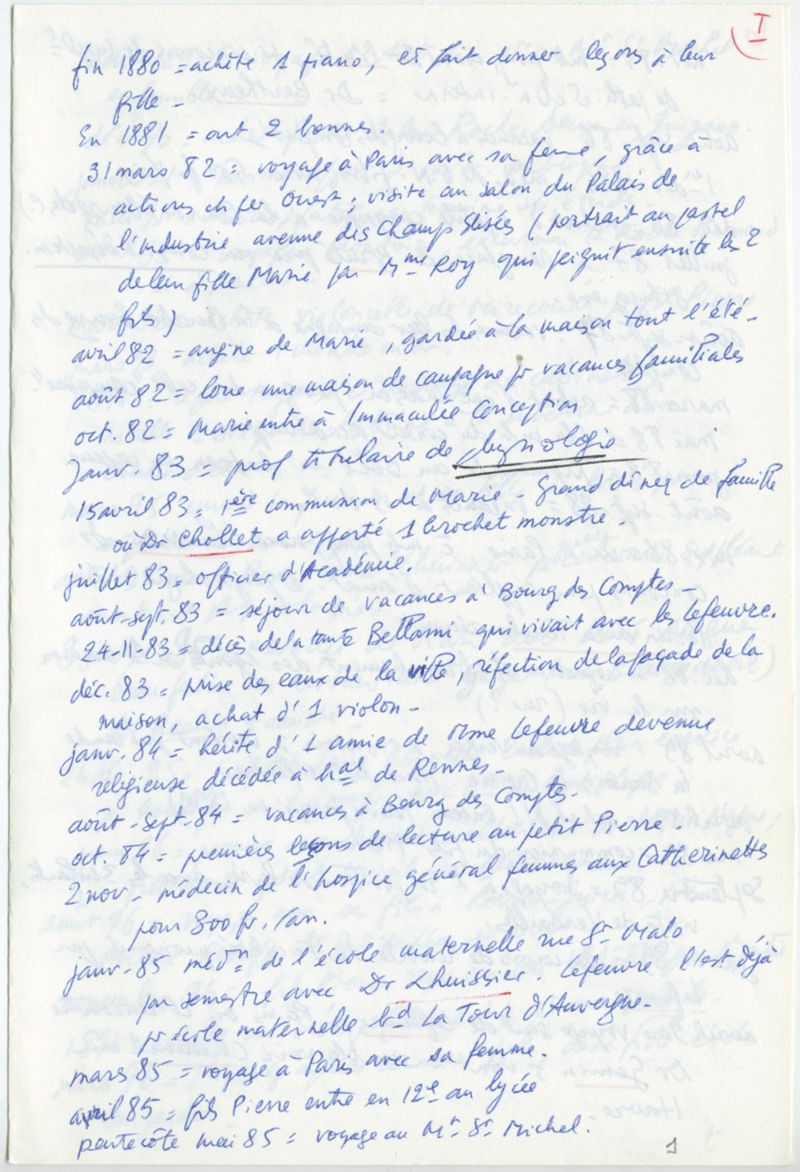 I
fin 1880 = achète 1 piano, et fait donner leçons à leur
fille -
En 1881 = ont 2 bonnes.
31 mars 82 = voyage à Paris avec sa femme, grâce à
actions ch. fer Ouest ; visite au salon du Palais de
l'industrie avenue des Champs Elisées (portrait au pastel
de leur fille Marie par Mme Roy qui peignit ensuite les 2
fils)
avril 82 = angine de Marie, gardée à la maison tout l'été -
août 82 = loue une maison de campagne pr vacances familiales
oct. 82 = Marie entre à Immaculée Conception
Janv. 83 = prof titulaire de physiologie
15 avril 83 = 1ère communion de Marie - Grand dîner de famille
où Dr Chollet a apporté 1 brochet monstre.
juillet 83 = officier d'Académie.
août-sept. 83 = séjour de vacances à Bourg des Comptes -
24-11-83 = décès de la tante Bellami qui vivait avec les Lefeuvre.
déc. 83 = prise des eaux de la ville, réfection de la façade de la
maison, achat d'1 violon -
janv. 84 = hérite d'1 amie de Mme Lefeuvre devenue
religieuse décédée à hal de Rennes -
août-sept-84 = vacances à Bourg des Comptes -
oct. 84 = premières leçons de lecture au petit Pierre.
2 nov - médecin de l'hospice général femmes aux Catherinettes
pour 800 fr./an.
janv-85 médn de l'école maternelle rue St Malo
par semestre avec Dr Lhuissier. Lefeuvre l'est déjà
pr école maternelle bd La Tour d'Auvergne.
mars 85 = voyage à Paris avec sa femme.
avril 85 = fils Pierre entre en 12e au lycée
pentecôte mai 85 = voyage au Mt St Michel.
1